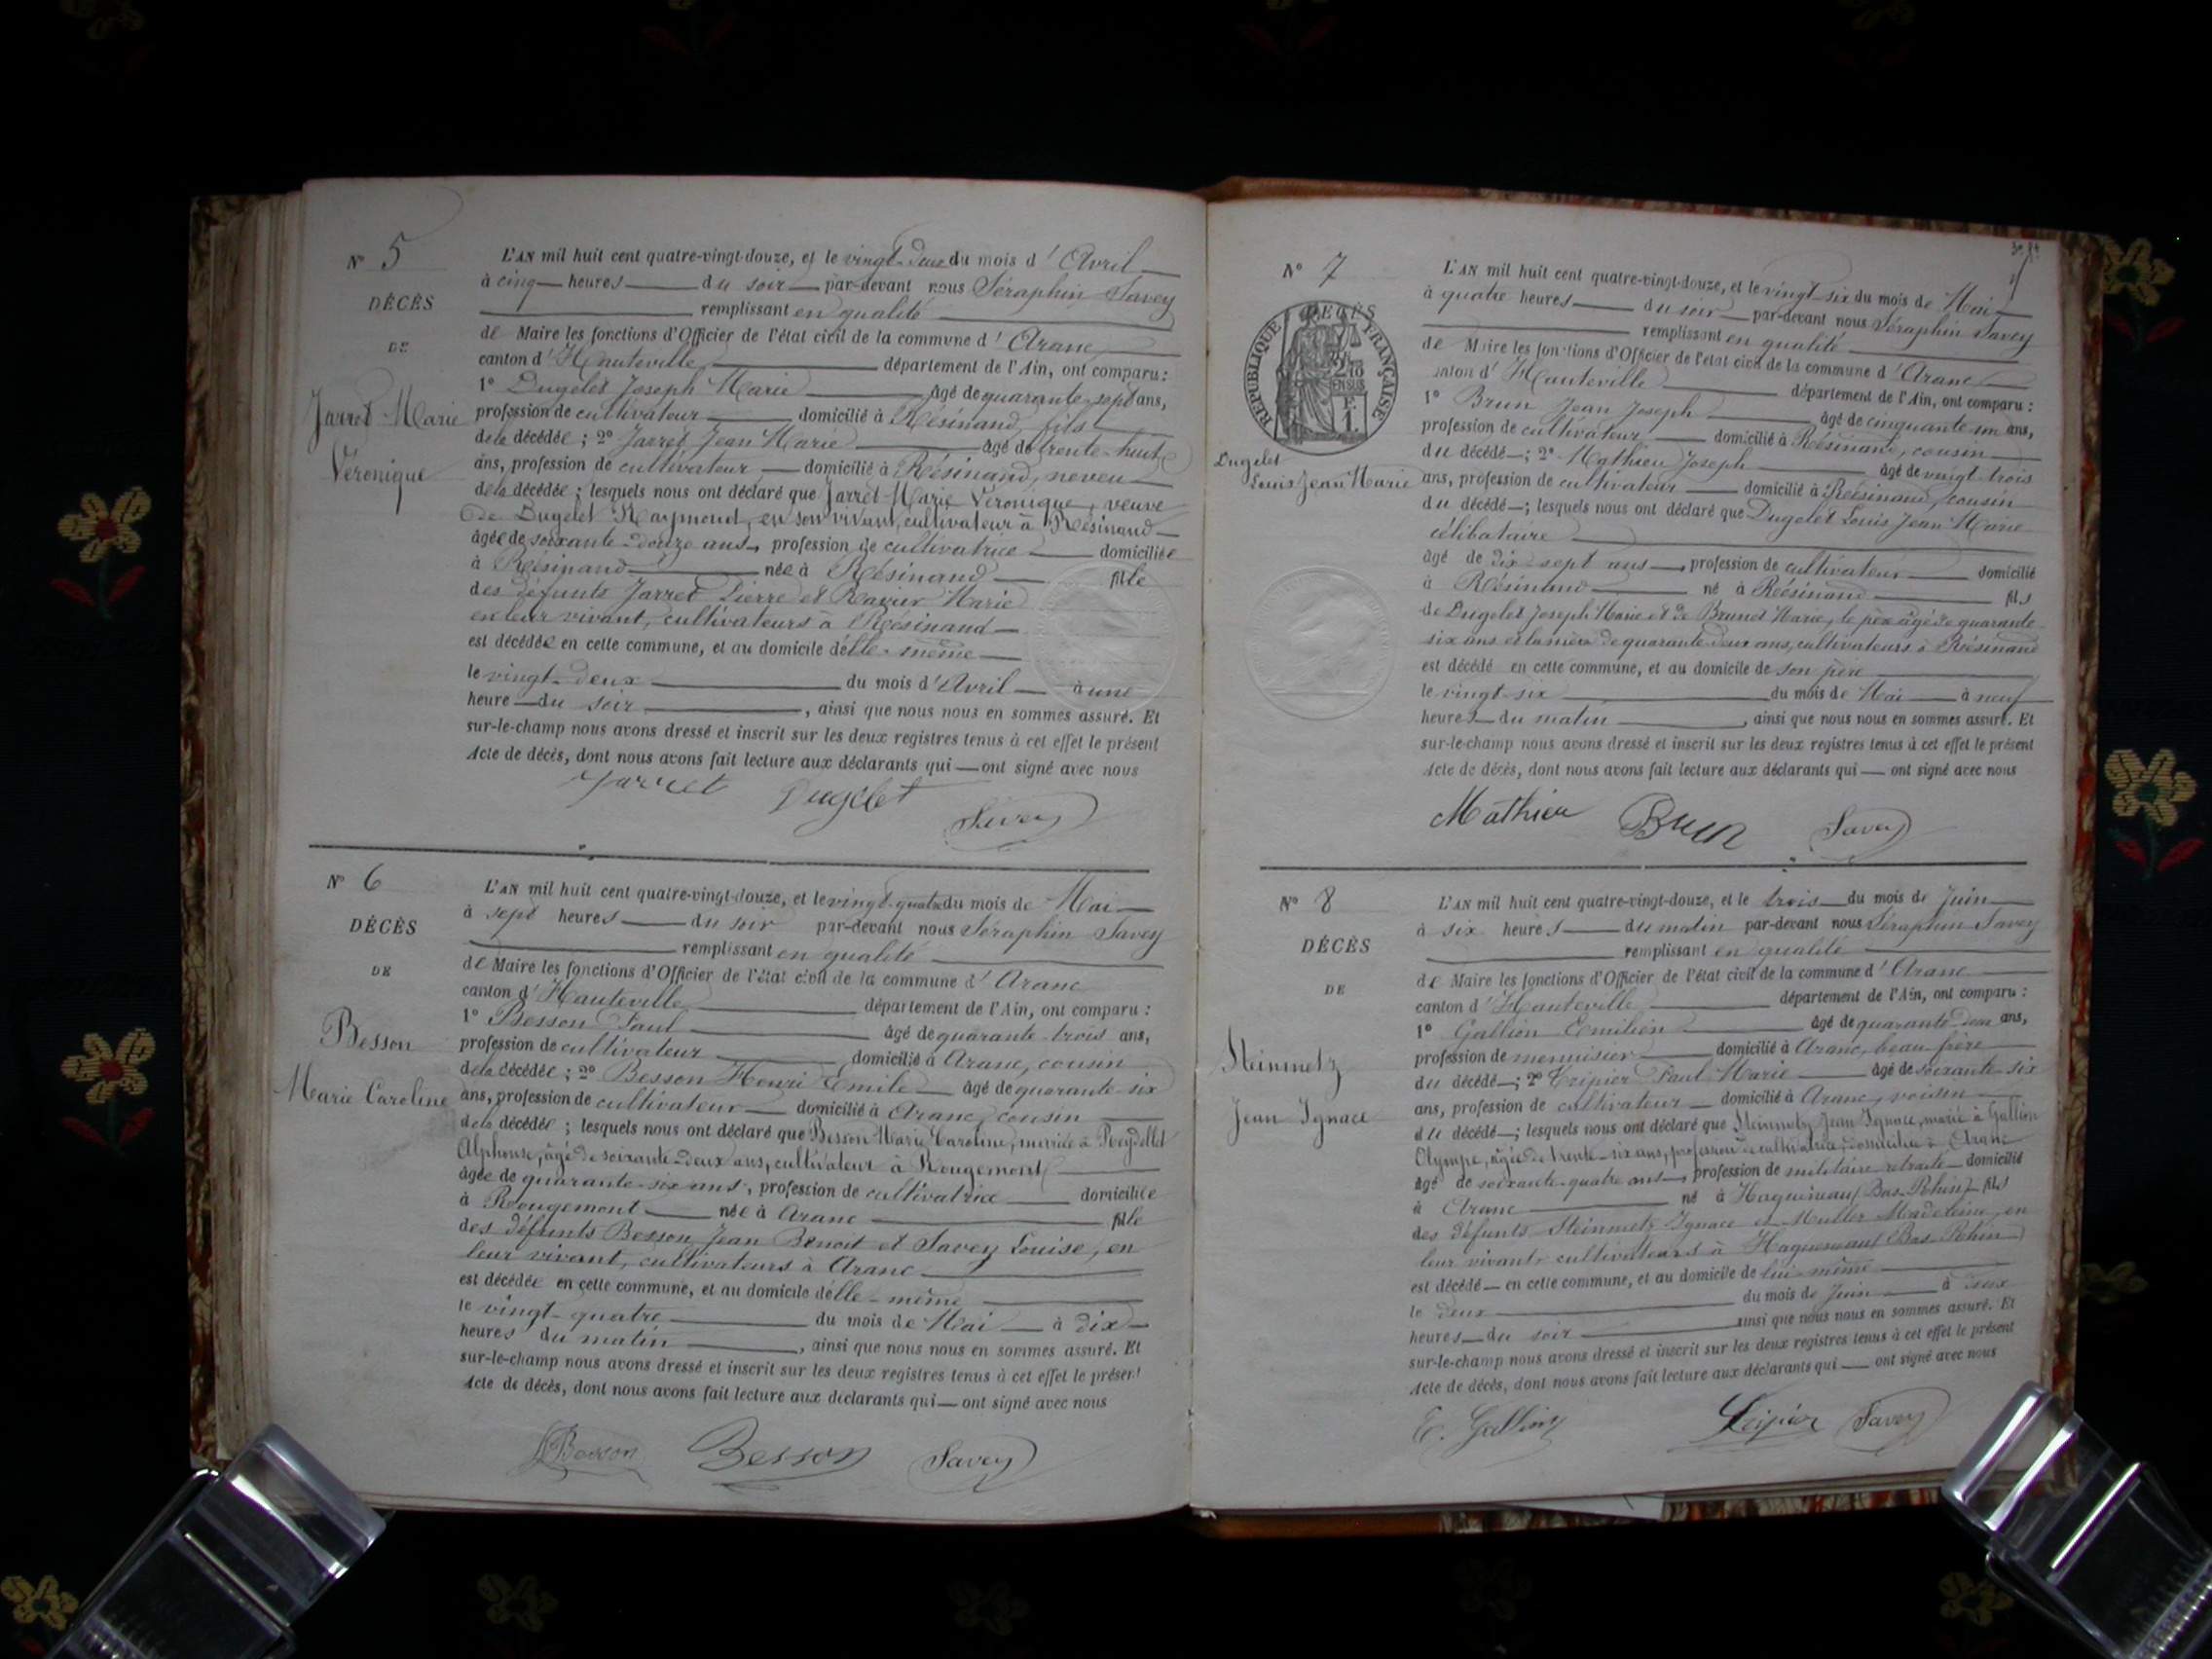 N° 5
DÉCÈS
DE
Jarret Marie
Véronique
L'AN mil huit cent quatre-vingt-douze, et le vingt-deux du mois d'Avril
à cinq heures du soir par-devant nous Séraphin Savey
remplissant en qualité
de Maire les fonctions d'Officier de l'état civil de la commune d'Aranc
canton d'Hauteville département de l'Ain, ont comparu :
1° Dugelet Joseph Marie âgé de quarante-sept ans,
profession de cultivateur domicilié à Résinand, fils
de la décédée ; 2° Jarret Jean Marie âgé de trente-huit
ans, profession de cultivateur domicilié à Résinand, neveu
de la décédée ; lesquels nous ont déclaré que Jarret Marie Véronique, veuve
de Dugelet Raymond, en son vivant, cultivateur à Résinand
âgée de soixante-douze ans, profession de cultivatrice domiciliée
à Résinand née à Résinand fille
des défunts Jarret Pierre et Ravier Marie
en leur vivant, cultivateurs à Résinand
est décédée en cette commune, et au domicile d'elle-même
le vingt-deux du mois d'Avril à une
heure du soir, ainsi que nous nous en sommes assuré. Et
sur-le-champ nous avons dressé et inscrit sur les deux registres tenus à cet effet le présent
Acte de décès, dont nous avons fait lecture aux déclarants qui ont signé avec nous
Jarret Dugelet Savey
N° 6
DÉCÈS
DE
Besson
Marie Caroline
L'AN mil huit cent quatre-vingt-douze, et le vingt-quatre du mois de Mai
à sept heures du soir par-devant nous Séraphin Savey
remplissant en qualité
de Maire les fonctions d'Officier de l'état civil de la commune d'Aranc
canton d'Hauteville département de l'Ain, ont comparu :
1° Besson Paul âgé de quarante-trois ans,
profession de cultivateur domicilié à Aranc, cousin
de la décédée ; 2° Besson Henri Emile âgé de quarante-six
ans, profession de cultivateur domicilié à Aranc, cousin
de la décédée ; lesquels nous ont déclaré que Besson Marie Caroline, mariée à
Alphonse, âgé de soixante-deux ans, cultivateur à Rougemont
âgée de quarante-six ans, profession de cultivatrice domiciliée
à Rougemont née à Aranc fille
des défunts Besson Jean Benoit et Savey Louise, en
leur vivant, cultivateurs à Aranc
est décédée en cette commune, et au domicile d'elle-même
le vingt-quatre du mois de Mai à dix
heures du matin, ainsi que nous nous en sommes assuré. Et
sur-le-champ nous avons dressé et inscrit sur les deux registres tenus à cet effet le présent
Acte de décès, dont nous avons fait lecture aux déclarants qui ont signé avec nous
Besson Besson Savey
N° 7
DÉCÈS
RÉPUBLIQUE FRANÇAISE
2/10 EN SUS
F. 1.
Dugelet
Louis Jean Marie
L'AN mil huit cent quatre-vingt-douze, et le vingt-six du mois de Mai
à quatre heures du soir par-devant nous Séraphin Savey
remplissant en qualité
de Maire les fonctions d'Officier de l'état civil de la commune d'Aranc
canton d'Hauteville département de l'Ain, ont comparu :
1° Brun Jean Joseph âgé de cinquante-un ans,
profession de cultivateur domicilié à Résinand, cousin
du décédé ; 2° Mathieu Joseph âgé de vingt-trois
ans, profession de cultivateur domicilié à Résinand, cousin
du décédé ; lesquels nous ont déclaré que Dugelet Louis Jean Marie
célibataire
âgé de dix-sept ans, profession de cultivateur domicilié
à Résinand né à Résinand fils
de Dugelet Joseph Marie et de Brunet Marie, le père âgé de quarante-
six ans et la mère de quarante-deux ans, cultivateurs à Résinand
est décédé en cette commune, et au domicile de son père
le vingt-six du mois de Mai à neuf
heures du matin, ainsi que nous nous en sommes assuré. Et
sur-le-champ nous avons dressé et inscrit sur les deux registres tenus à cet effet le présent
Acte de décès, dont nous avons fait lecture aux déclarants qui ont signé avec nous
Mathieu Brun Savey
N° 8
DÉCÈS
DE
Steinmetz
Jean Ignace
L'AN mil huit cent quatre-vingt-douze, et le trois du mois de Juin
à six heures du matin par-devant nous Séraphin Savey
remplissant en qualité
de Maire les fonctions d'Officier de l'état civil de la commune d'Aranc
canton d'Hauteville département de l'Ain, ont comparu :
1° Gallion Emilien âgé de quarante-deux ans,
profession de menuisier domicilié à Aranc, beau-frère
du décédé ; 2° Tripier Paul Marie âgé de soixante-six
ans, profession de cultivateur domicilié à Aranc, voisin
du décédé ; lesquels nous ont déclaré que Steinmetz Jean Ignace, marié à Gallion
Olympe, âgée de trente-six ans, profession de cultivatrice, domiciliée à Aranc
âgé de soixante-quatre ans, profession de militaire retraité domicilié
à Aranc né à Haguenau (Bas-Rhin) fils
des défunts Steinmetz Ignace et Muller Madeleine, en
leur vivant, cultivateurs à Haguenau (Bas-Rhin)
est décédé en cette commune, et au domicile de lui-même
le deux du mois de Juin à deux
heures du soir ainsi que nous nous en sommes assuré. Et
sur-le-champ nous avons dressé et inscrit sur les deux registres tenus à cet effet le présent
Acte de décès, dont nous avons fait lecture aux déclarants qui ont signé avec nous
E. Gallion Tripier Savey